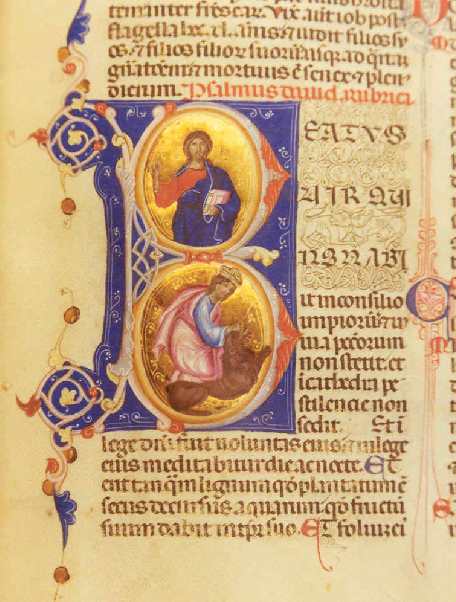 tem inter
aut iob post
flagella
filios
os et filios filior suorum usq ad
mortuus est senex et plen
dierum. Psalmus dauid. rubrica
BEATVS
UIR QUI
NON ABI
it in consilio
impiorum et i
uia peccorum
non stetit et
i cathedra pe
stilencie non
sedit. Et i
lege dni fuit uoluntas eius et i lege
eius meditabitur die ac nocte. Et
erit tanqm lignum qd plantatum e
secus decursus aquarum qd fructu
suum dabit in tpr suo. Et foliu ei